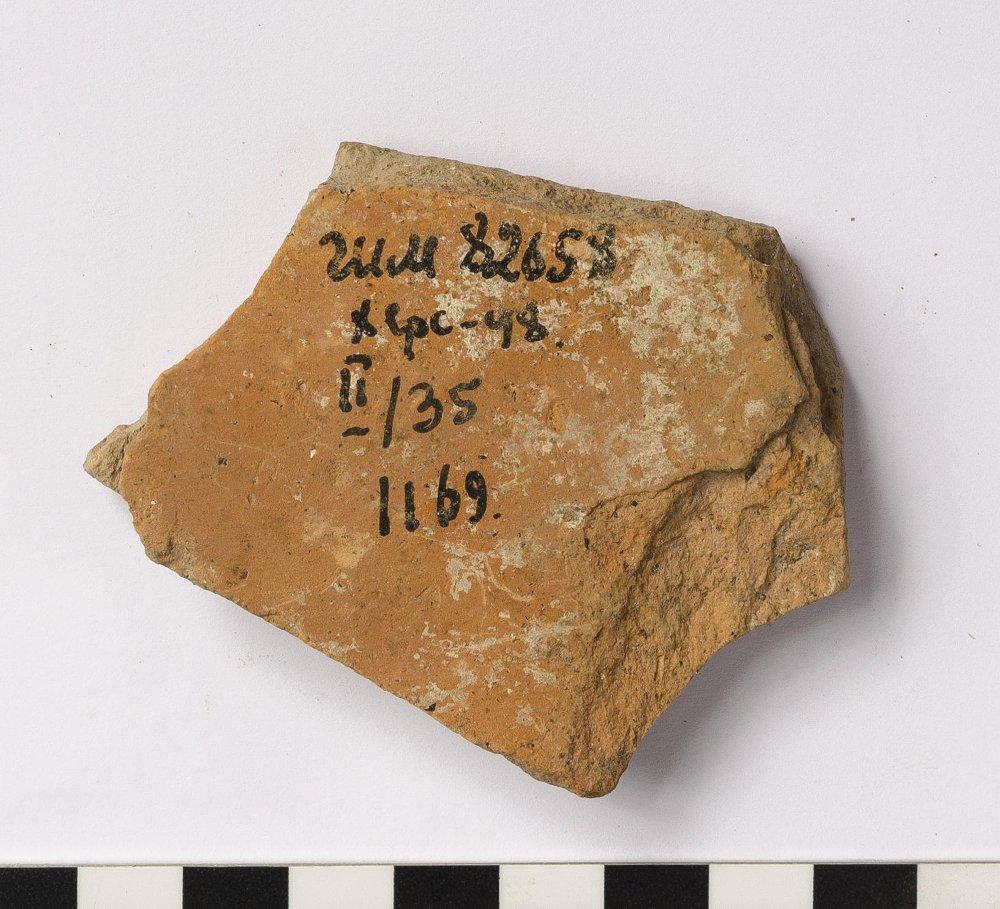 ГИМ 82658
Херс-48.
II/35
1169.